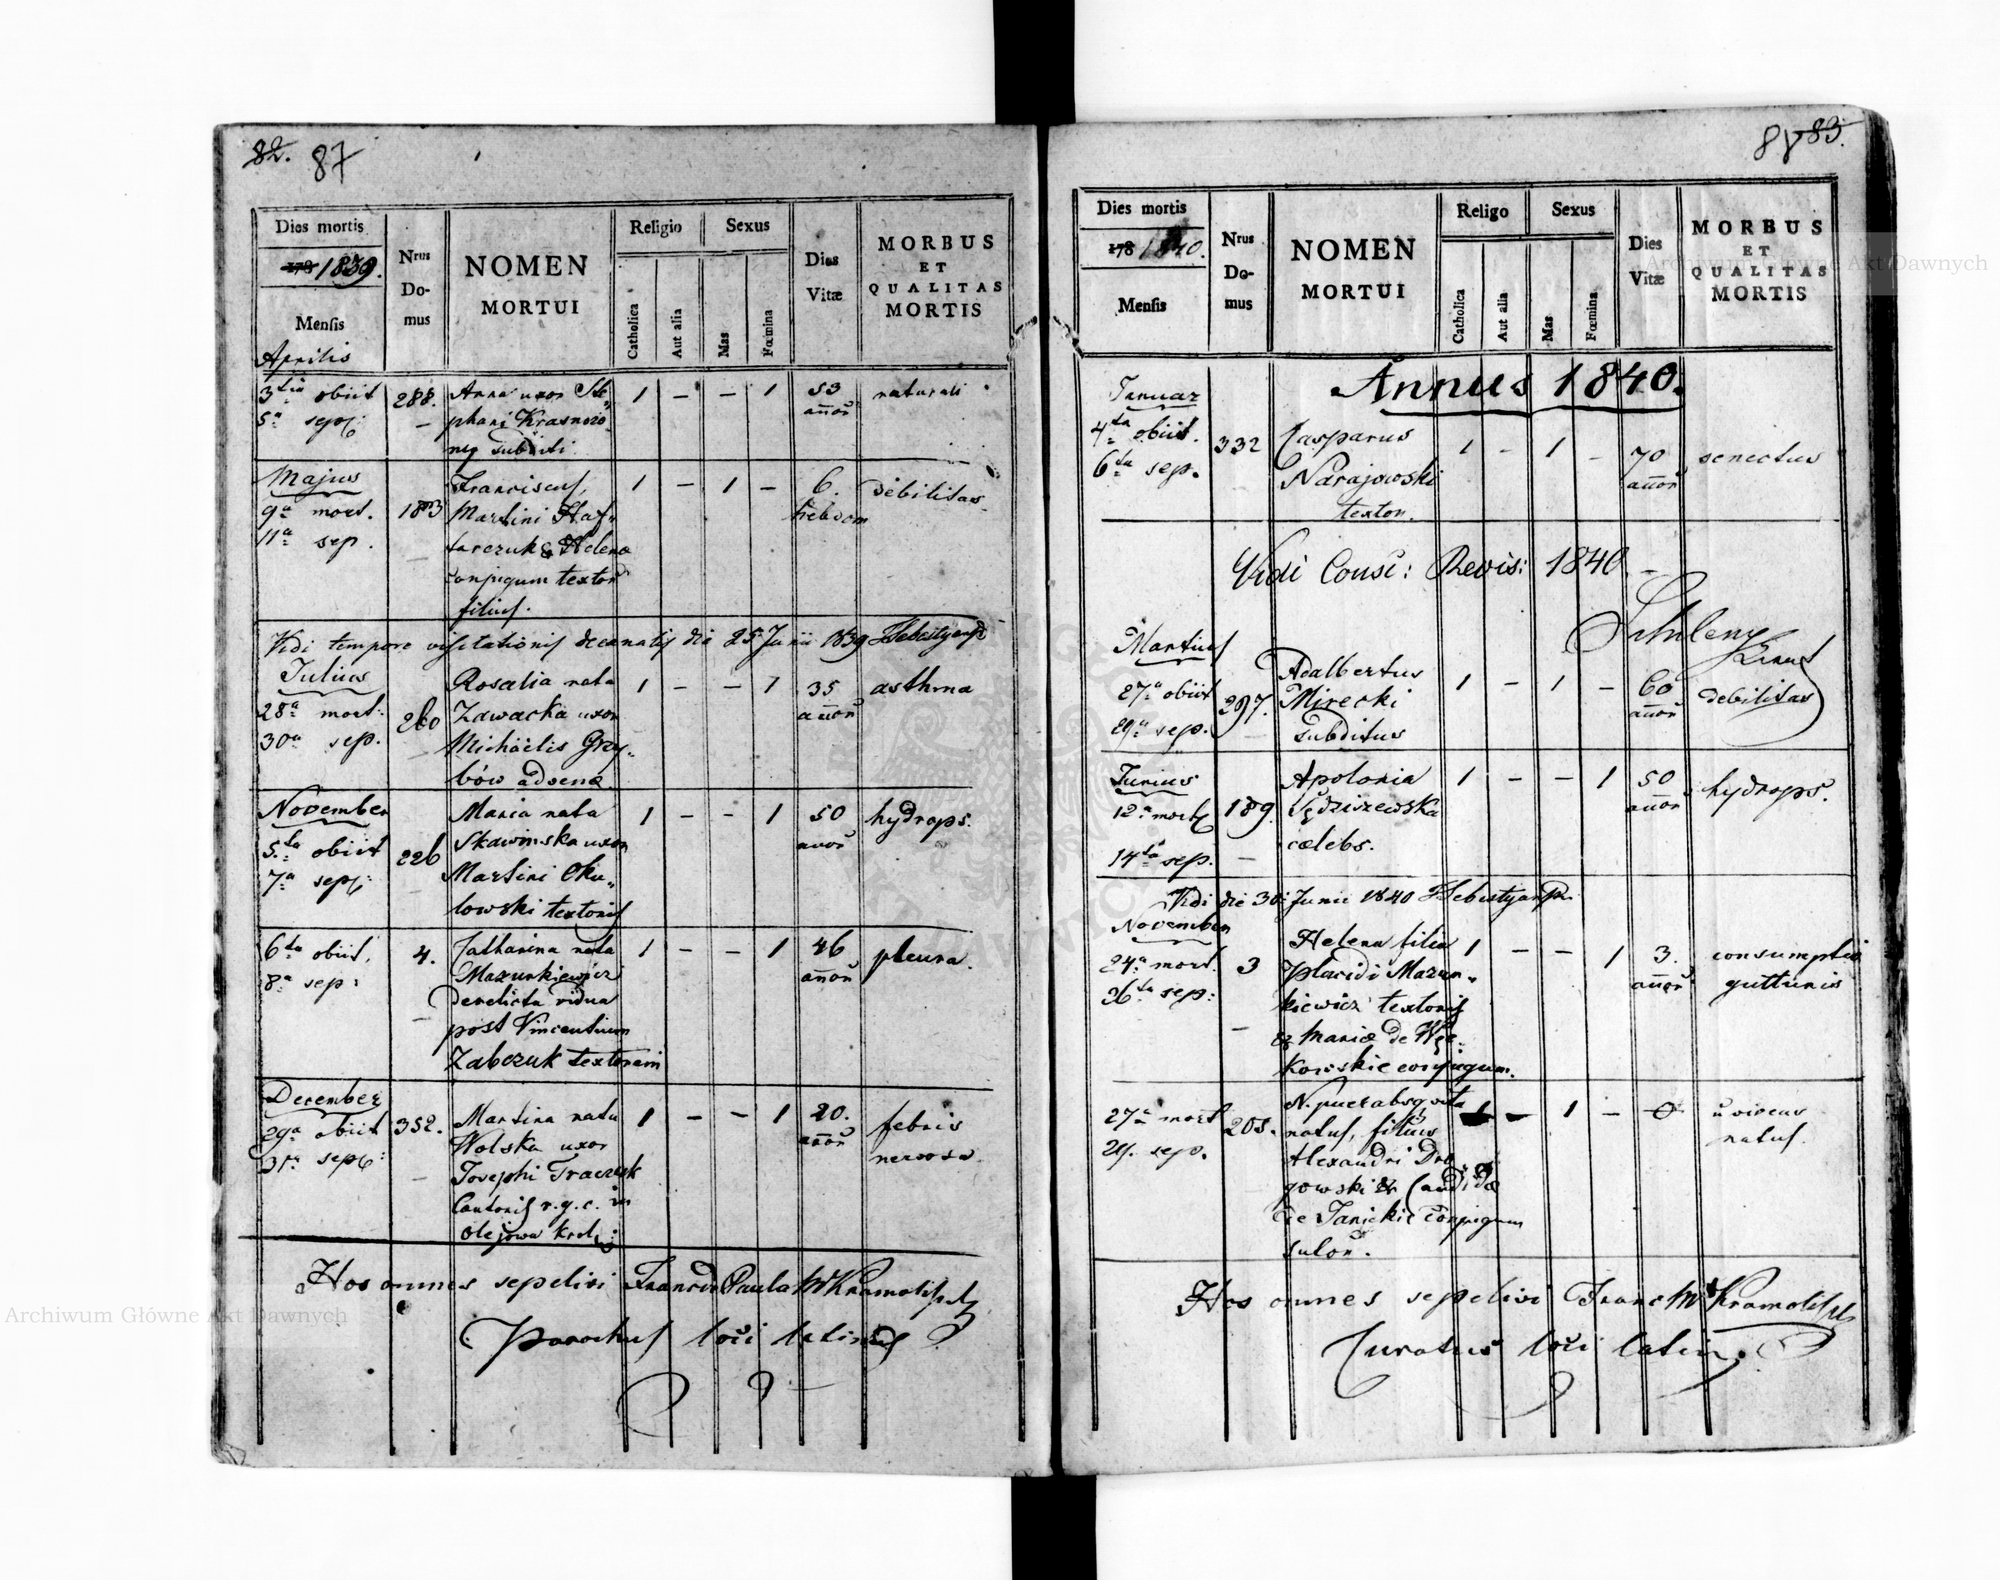 82. 87
Dies mortis
178 1839.
Mensis
Nrus Do- mus
NOMEN
MORTUI
Religio
Catholica
Aut alia
Sexus
Mas
Fœmina
Dies
Vitæ
MORBUS
ET
QUALITAS
MORTIS
Aprilis
3tia obiit 288. Anna uxor Ste„ 1 – – 1 53 naturali
5a sep: – phani Krasnozo„ annor
ney subditi
Majus Franciscus, 1 – 1 – 6. debilitas
9a mort. 183 Martini Haf„ hebdom
11a sep. – tarczuk & Helena
conjugum textor
filius.
Vidi tempore visitationis decanatis die 25 Junii 1839
Julius Rosalia nata 1 – – 1 35 asthma
28a mort: 260 Zawacka uxor annor
30a sep. – Michaelis Grzy„
bów advenæ
November Maria nata 1 – – 1 50 hydrops.
5ta obiit 226 Skawinska uxor annor
7a sep: – Martini Oku„
lowski textoris
6ta obiit, 4. Catharina nata 1 – – 1 46 pleura.
8a sep: Mazurkiewicz annor
derelicta vidua
– post Vincentium
Zabczuk textorem
December
29a obiit 352. Martina nata 1 – – 1 20. febris
31a sep: Wolska uxor annor nervosa
– Josephi Traczuk
Cantoris r. g. c. in
Olejowa
Hos omnes sepelivi Francis Paula
Parochus loci latinus
88 83.
Dies mortis
178 1840.
Mensis
Nrus Do- mus
NOMEN
MORTUI
Religo
Catholica
Aut alia
Sexus
Mas
Fœmina
Dies
Vitæ
MORBUS
ET
QUALITAS
MORTIS
Annus 1840.
Januar
4ta obiit. 332 Casparus 1 – 1 – 70 senectus
6ta sep. Narajowski annor
textor.
Vidi Consi: Revis: 1840 –
Martius
27a obiit 297. Adalbertus 1 – 1 – 60 debilitas
29a sep. Mirecki annor
subditus
Junius Apolonia 1 – – 1 50 hydrops.
12a mort 189. Sędziszewska annor
14ta sep. – cælebs.
Vidi die 30 Junii 1840
November Helena filia 1 – – 1 3. consumptio
24a mort. 3 Placidi Mazur„ annor gutturis
26ta sep: kiewicz textoris
– & Mariæ de
kowskie conjugum.
27a mort 205. N. puer absq vita 1 – 1 – 0
29. sep. natus, filius natus.
Alexandri Dro
gowski & Candidæ
de Janickie conjugum
sutor.
Hos omnes sepelivi Franc
Curatus loci latin.
Archiwum Główne Akt Dawnych
Archiwum Główne Akt Dawnych